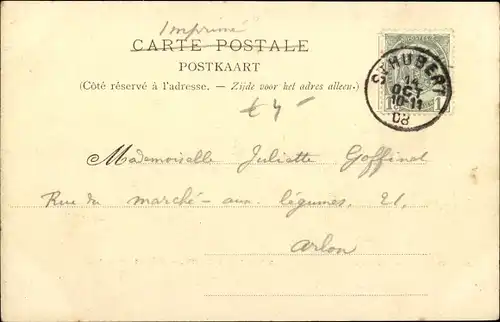 Imprimé
CARTE POSTALE
POSTKAART
(Côté réservé à l'adresse. — Zijde voor het adres alleen.)
€ 4 -
SCHUBERT
14
OCT
10-11
08
1 1
Mademoiselle Juliette Goffinet
Rue du marché-aux légumes, 21,
Arlon